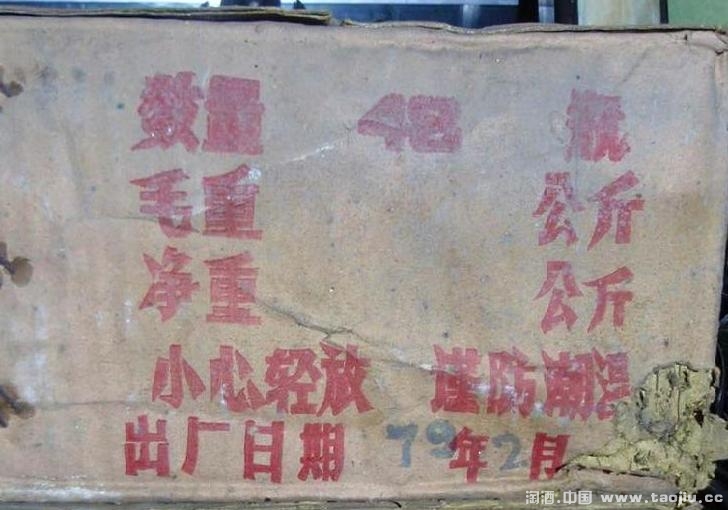 数量 48 瓶
毛重 公斤
净重 公斤
小心轻放 谨防潮湿
出厂日期 79年2月
淘酒.中国 www.taojiu.cc